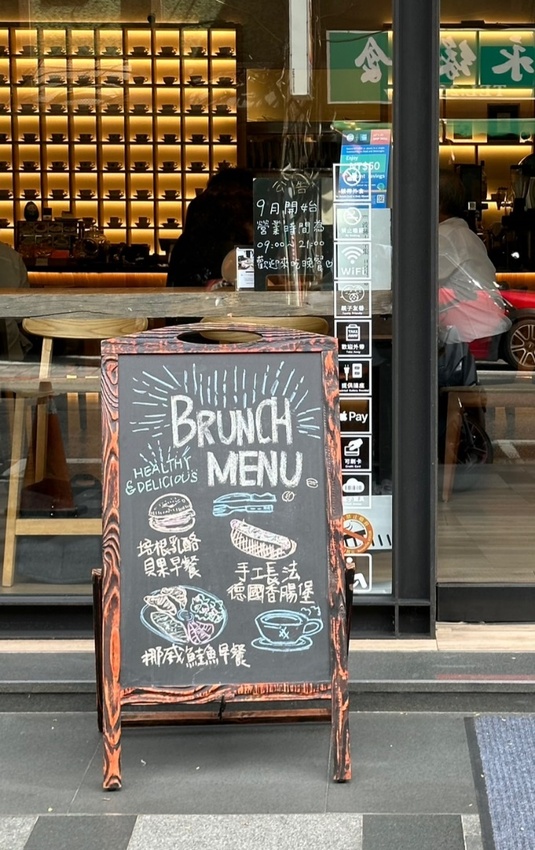 公告
9月開始
營業時間為
09:00~21:00
歡迎來吃晚餐
WiFi
親子友善
歡迎外帶
提供插座
Pay
可刷卡
BRUNCH
MENU
HEALTHY
& DELICIOUS
培根乳酪
貝果早餐
手工長法
德國香腸堡
挪威鮭魚早餐